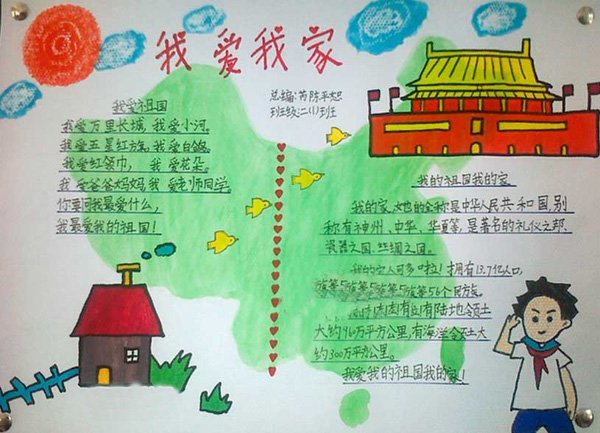 我爱我家
总编:芮陈平
班级:二(1)班
我爱祖国
我爱万里长城,我爱小河。
我爱五星红旗,我爱白鸽。
我爱红领巾, 我爱花朵。
我爱爸爸妈妈,我爱老师同学。
你要问我最爱什么,
我最爱我的祖国!
我的祖国我的家
我的家,她的全称是中华人民共和国,别
称有神州、中华、华夏等,是著名的礼仪之邦、
瓷器之国、丝绸之国。
我的家人可多啦!拥有13.7亿人口,
56个民族。
有陆地领土
大约960万平方公里,有海洋领土大
约300万平方公里。
我爱我的祖国我的家!